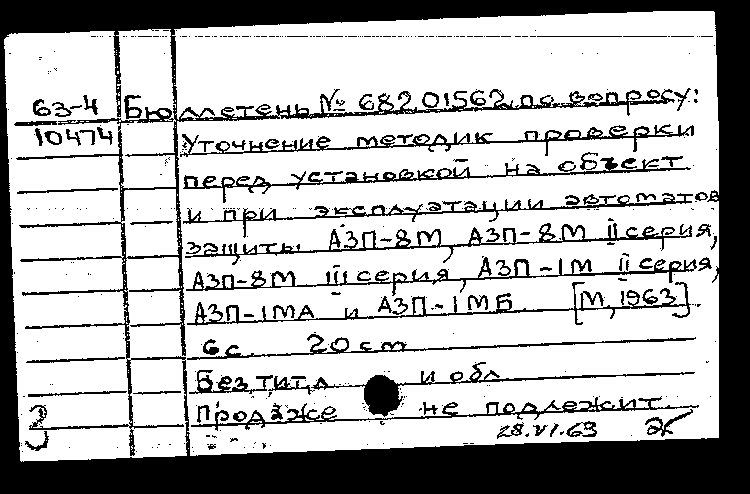 63-4 Бюллетень № 68201562 по вопросу:
10474 Уточнение методик проверки
перед установкой на объект
и при эксплуатации автоматов
защиты АЗП-8М, АЗП-8М II серия,
АЗП-8М III серия, АЗП-1М II серия,
АЗП-1МА и АЗП-1МБ [М, 1963].
6 с 20 см
Без тит. л и обл
Продаже не подлежит.
28.VI.63